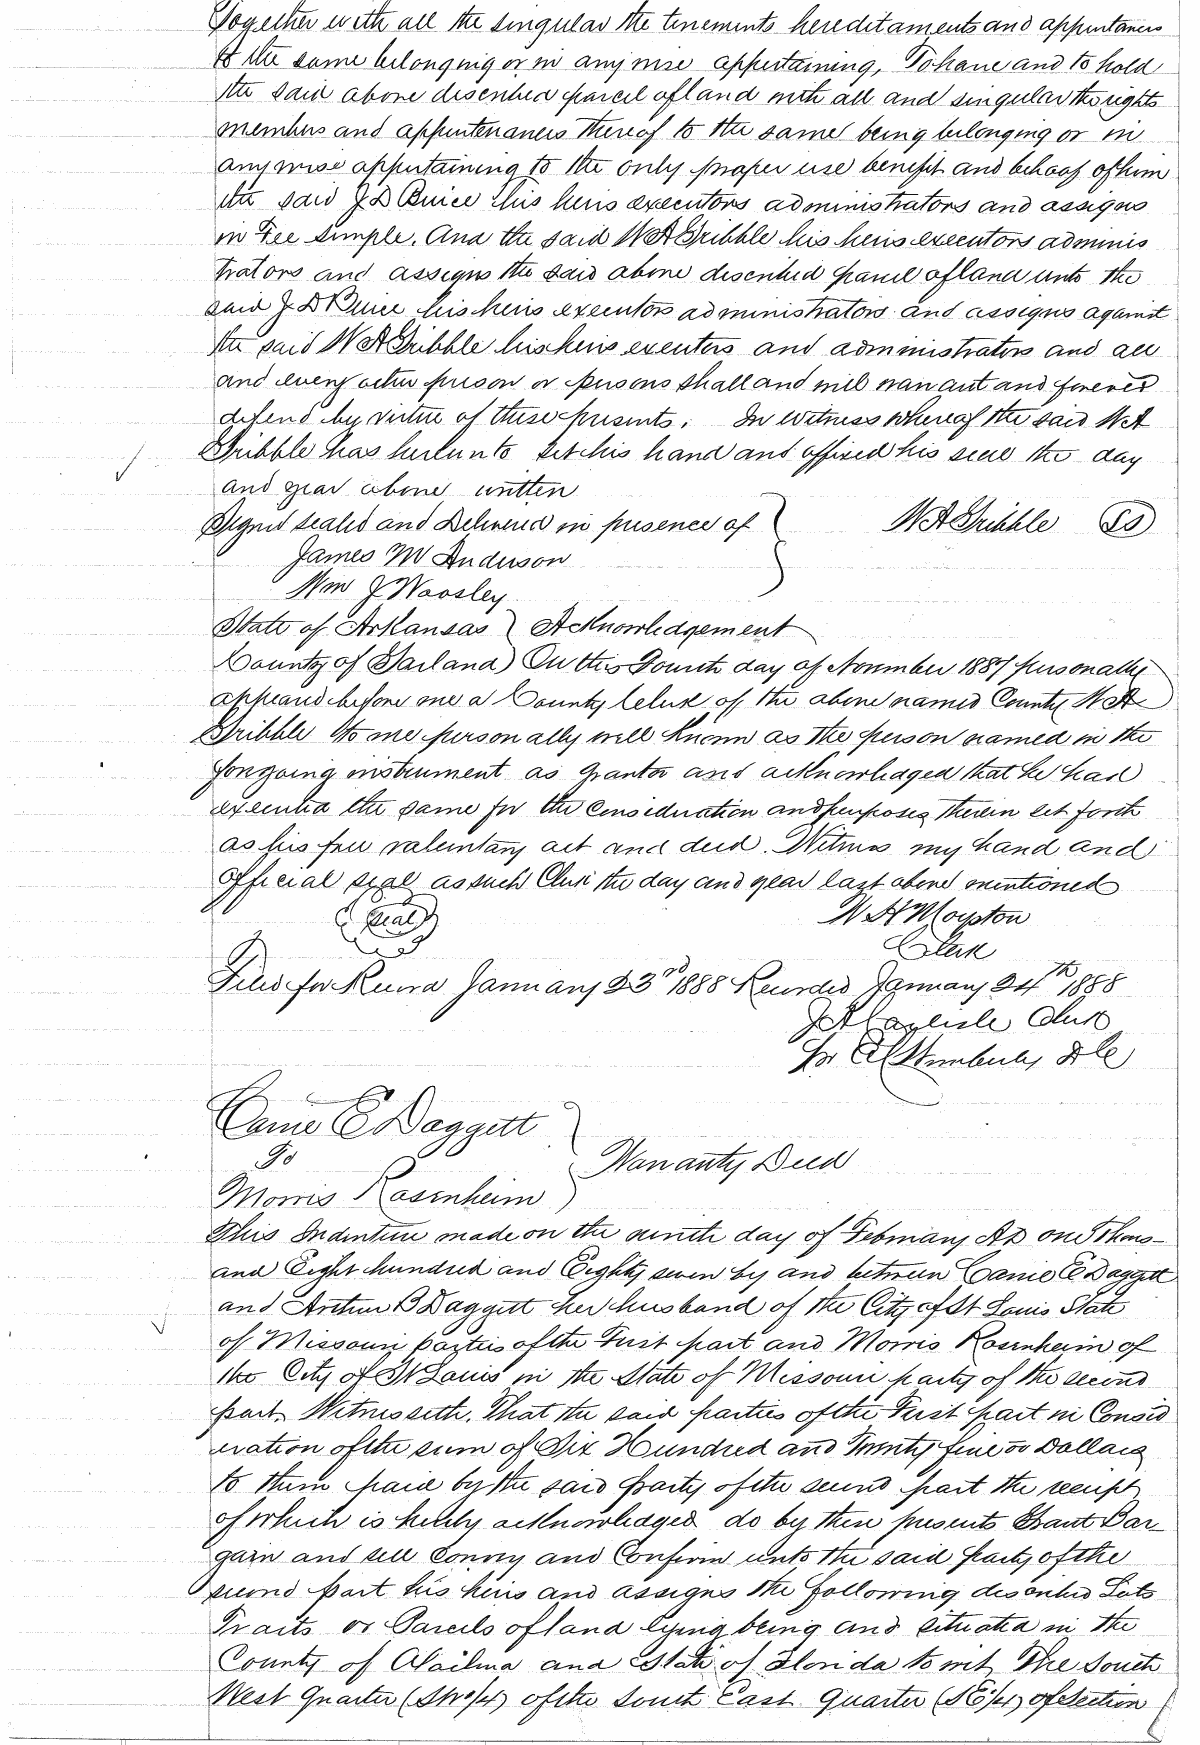 Together with all the singular the tenements hereditaments and appurtances
to the same belonging or in any wise appertaining, To have and to hold
the said above described parcel of land with all and singular the rights
members and appurtenances thereof to the same being belonging or in
any wise appertaining to the only proper use benefit and behoof of him
the said J D Buice his heirs executors administrators and assigns
in Fee simple. And the said W A Gribble his heirs executors adminis
trators and assigns the said above described parcel of land unto the
said J D Buice his heirs executors administrators and assigns against
the said W A Gribble his heirs executors and administrators and all
and every other person or persons shall and will warrant and forever
defend by virtue of these presents. In witness whereof the said W A
Gribble has hereunto set his hand and affixed his seal the day
and year above written
Signed sealed and Delivered in presence of W A Gribble
James M Anderson
Wm J Woosley
State of Arkansas } Acknowledgement
County of Garland ) On this Fourth day of November 1887 personally
appeared before me a County Clerk of the above named County W A
Gribble to me personally well known as the person named in the
foregoing instrument as grantor and acknowledged that he had
executed the same for the consideration and purposes therein set forth
as his free voluntary act and deed. Witness my hand and
official seal as such Clerk the day and year last above mentioned
(Seal) W H
Clerk
Filed for Record January 23rd 1888 Recorded January 24th 1888
J A Carlisle Clerk
Carrie E Daggett
To } Warranty Deed
Morris Rosenheim
This Indenture made on the ninth day of February AD one Thous-
and Eight hundred and Eighty seven by and between Carrie E Daggett
and Arthur B Daggett her husband of the City of St Louis State
of Missouri parties of the First part and Morris Rosenheim of
the City of St Louis in the State of Missouri party of the second
part. Witnesseth. That the said parties of the First part in Consid
eration of the sum of Six Hundred and Twenty five Dollars
to them paid by the said party of the second part the receipt
of which is hereby acknowledged do by these presents Grant Bar-
gain and sell Convey and Confirm unto the said party of the
second part his heirs and assigns the following described Lots
Tracts or Parcels of land lying being and situated in the
County of Alachua and State of Florida to wit, The South
West Quarter (SW 1/4) of the South East Quarter (SE 1/4) of Section